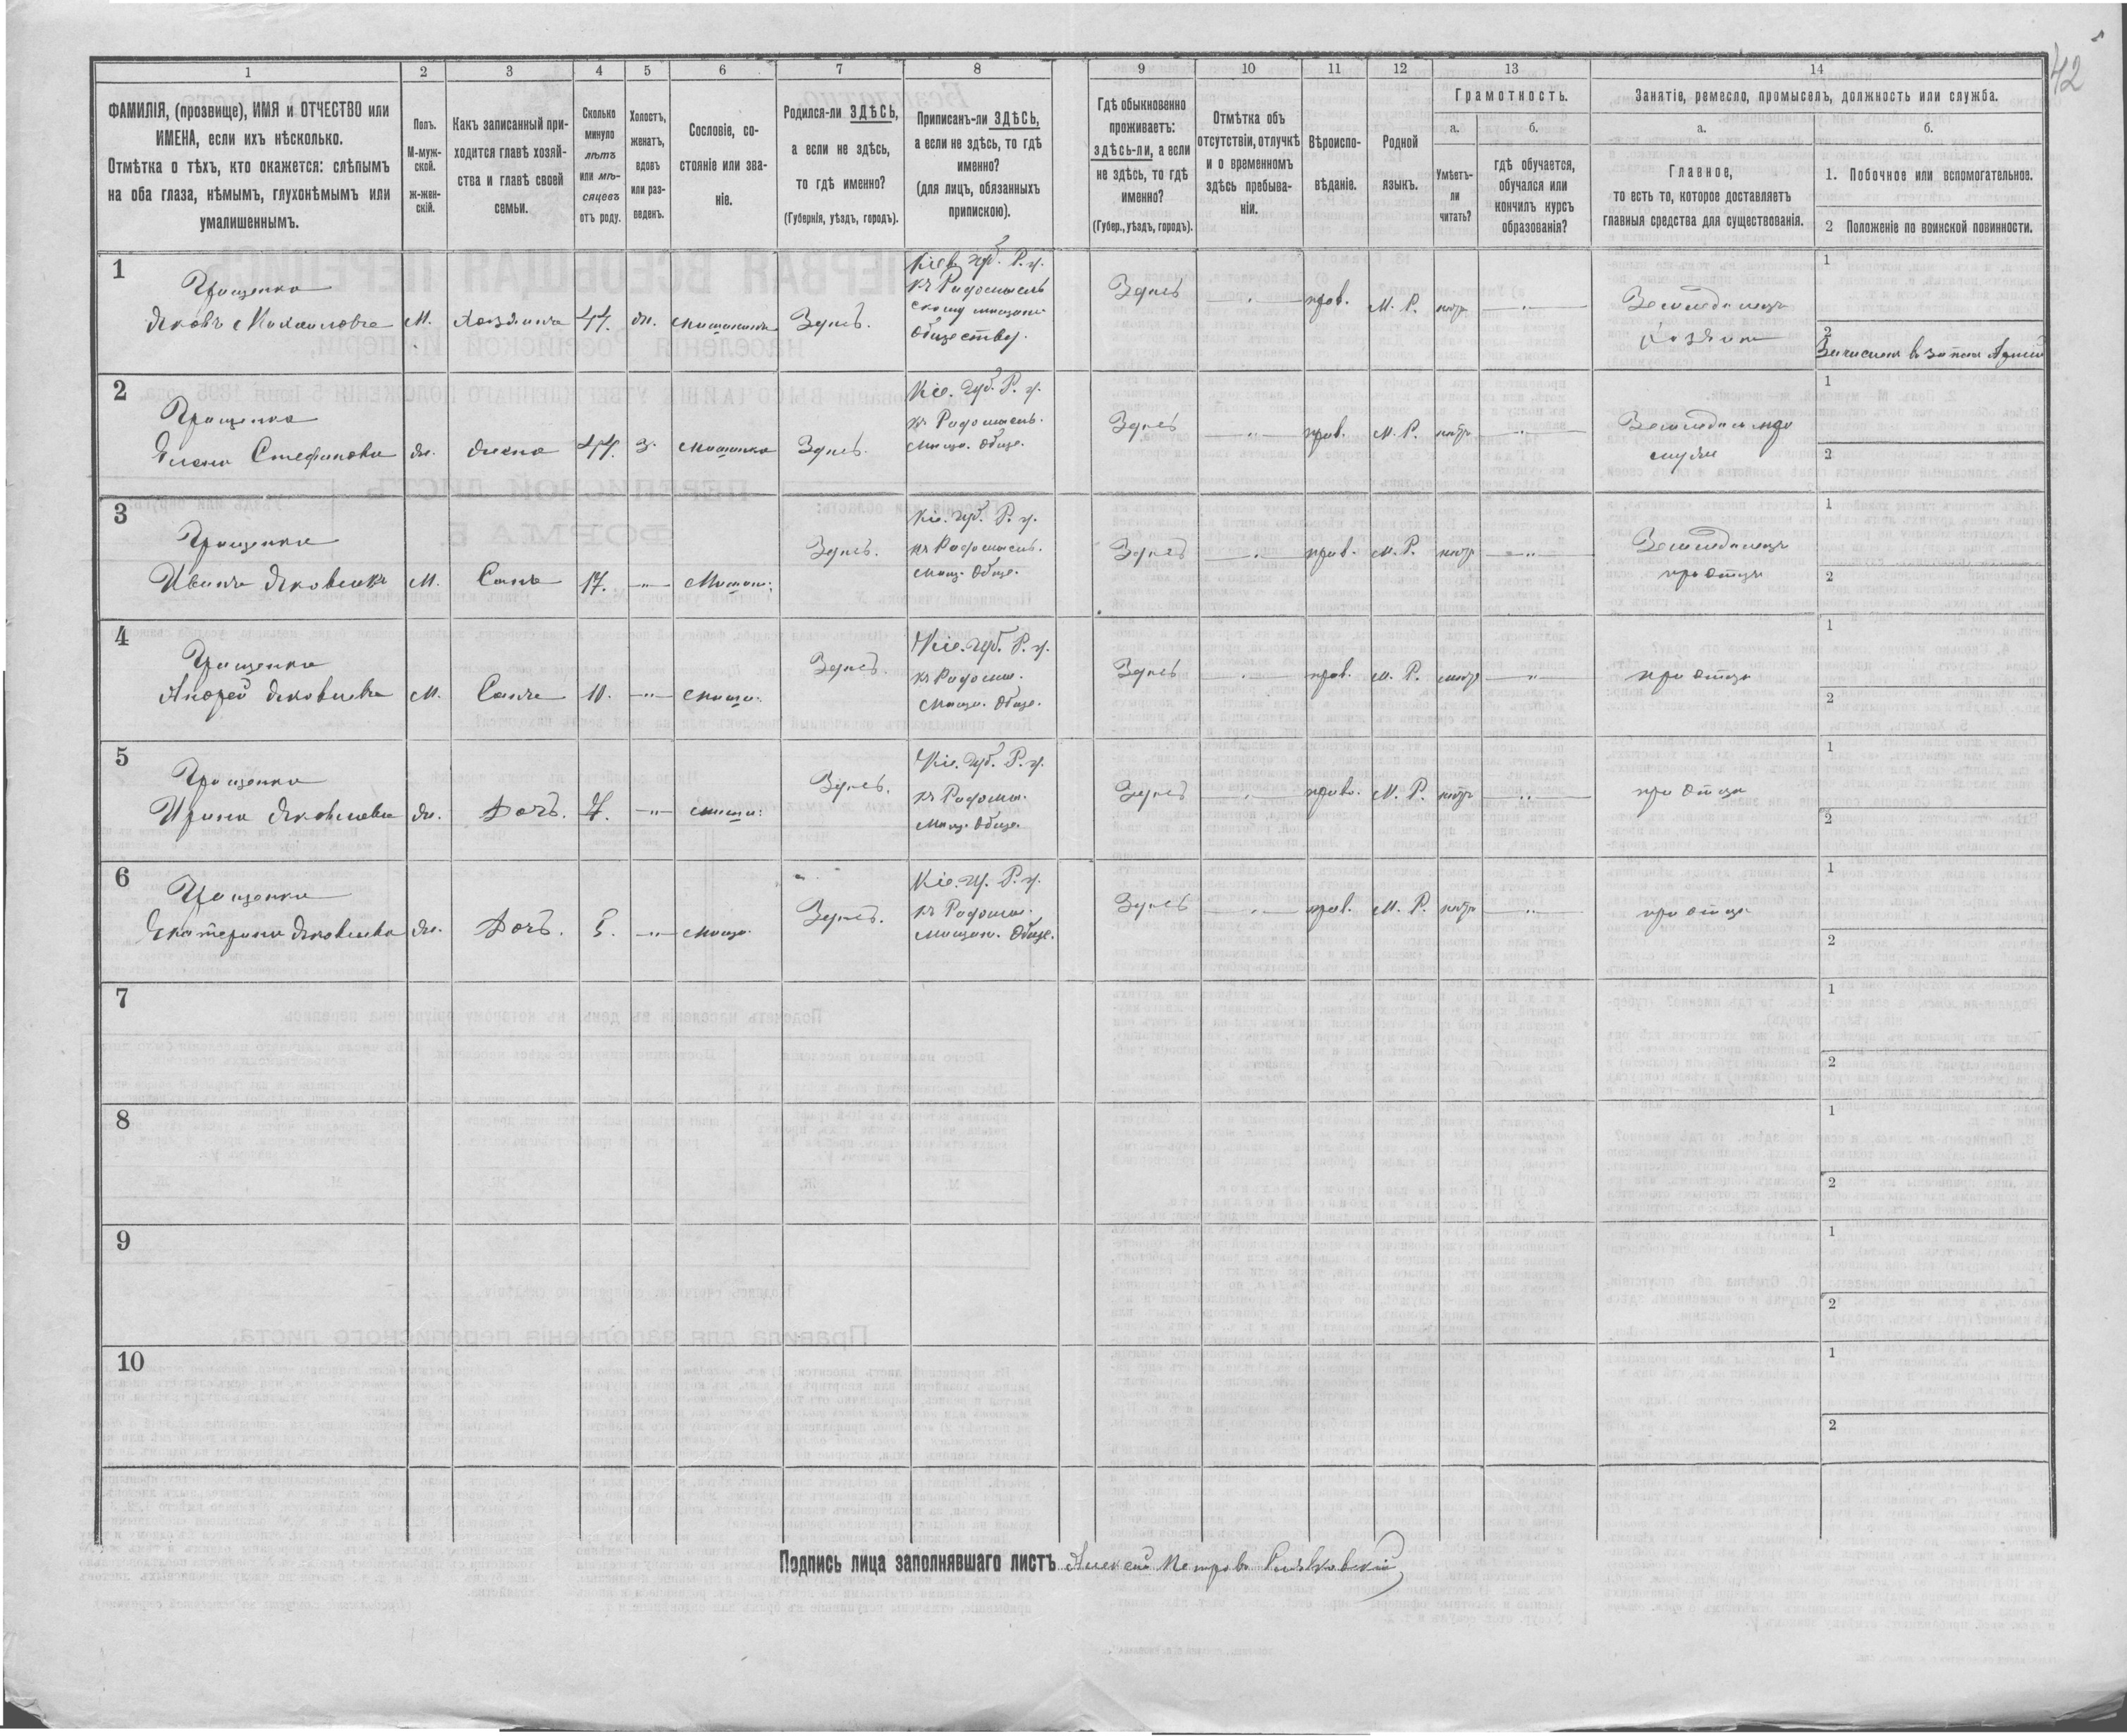 42
1 2 3 4 5 6 7 8 9 10 11 12 13 14
ФАМИЛІЯ, (прозвище), ИМЯ и ОТЧЕСТВО или
ИМЕНА, если ихъ нѣсколько.
Отмѣтка о тѣхъ, кто окажется: слѣпымъ
на оба глаза, нѣмымъ, глухонѣмымъ или
умалишеннымъ.
Полъ.
М-муж-
ской.
ж-жен-
скій.
Какъ записанный при-
ходится главѣ хозяй-
ства и главѣ своей
семьи.
Сколько
минуло
лѣтъ
или мѣ-
сяцевъ
отъ роду.
Холостъ,
женатъ,
вдовъ
или раз-
веденъ.
Сословіе, со-
стояніе или зва-
ніе.
Родился-ли ЗДѢСЬ,
а если не здѣсь,
то гдѣ именно?
(Губернія, уѣздъ, городъ).
Приписанъ-ли ЗДѢСЬ,
а если не здѣсь, то гдѣ
именно?
(для лицъ, обязанныхъ
припискою).
Гдѣ обыкновенно
проживаетъ:
здѣсь-ли, а если
не здѣсь, то гдѣ
именно?
(Губер., уѣздъ, городъ).
Отмѣтка объ
отсутствіи, отлучкѣ
и о временномъ
здѣсь пребыва-
ніи.
Вѣроиспо-
вѣданіе.
Родной
языкъ.
Грамотность.
а.
Умѣетъ-
ли
читать?
б.
гдѣ обучается,
обучался или
кончилъ курсъ
образованія?
Занятіе, ремесло, промыселъ, должность или служба.
а.
Главное,
то есть то, которое доставляетъ
главныя средства для существованія.
б.
1. Побочное или вспомогательное.
2 Положеніе по воинской повинности.
1
Грищенко
Яковъ Михаиловъ М. Хозяинъ 44. ж. мѣщанинъ Здѣсь.
Кіев. губ. Р. у.
къ Радомысль
скому мѣщан.
обществу.
Здѣсь пров. М. Р. нѣтъ
Земледелецъ
хозяинъ
1
2
Зачислен в запас Арміи
2
Грищенко
Елена Стефанова ж. жена 44. з. мѣщанка Здѣсь.
Кіе. губ. Р. у.
къ Радомысль.
мѣщ. обще.
Здѣсь прав. М. Р. нѣтъ
1
2
3
Грищенко
Иванъ Яковлевъ М. Сынъ 17. мѣщан: Здѣсь.
Кіе. губ. Р. у.
къ Радомысль.
мѣщ. обще.
Здѣсь прав. М. Р. нѣтъ
Земледелецъ
при отцѣ
1
2
4
Грищенко
Андрей Яковлевъ М. Сынъ 10. мѣщ. Здѣсь.
Кіе. губ. Р. у.
къ Радомы.
мѣщ. обще.
Здѣсь прав. М. Р. нѣтъ
при отцѣ
1
2
5
Грищенко
Ирина Яковлева ж. Дочь. 7. мѣщ: Здѣсь.
Кіе. губ. Р. у.
къ Радомы.
мѣщ. обще.
Здѣсь право. М. Р. нѣтъ
при отцѣ
1
2
6
Грищенко
Екатерина Яковлева ж. Дочь. 5. мѣщ. Здѣсь.
Кіе. гу. Р. у.
къ Радомы.
мѣщан. обще.
Здѣсь прав. М. Р. нѣтъ
при отцѣ
1
2
7
1
2
8
1
2
9
1
2
10
1
2
Подпись лица заполнявшаго листъ Алексей Петровъ